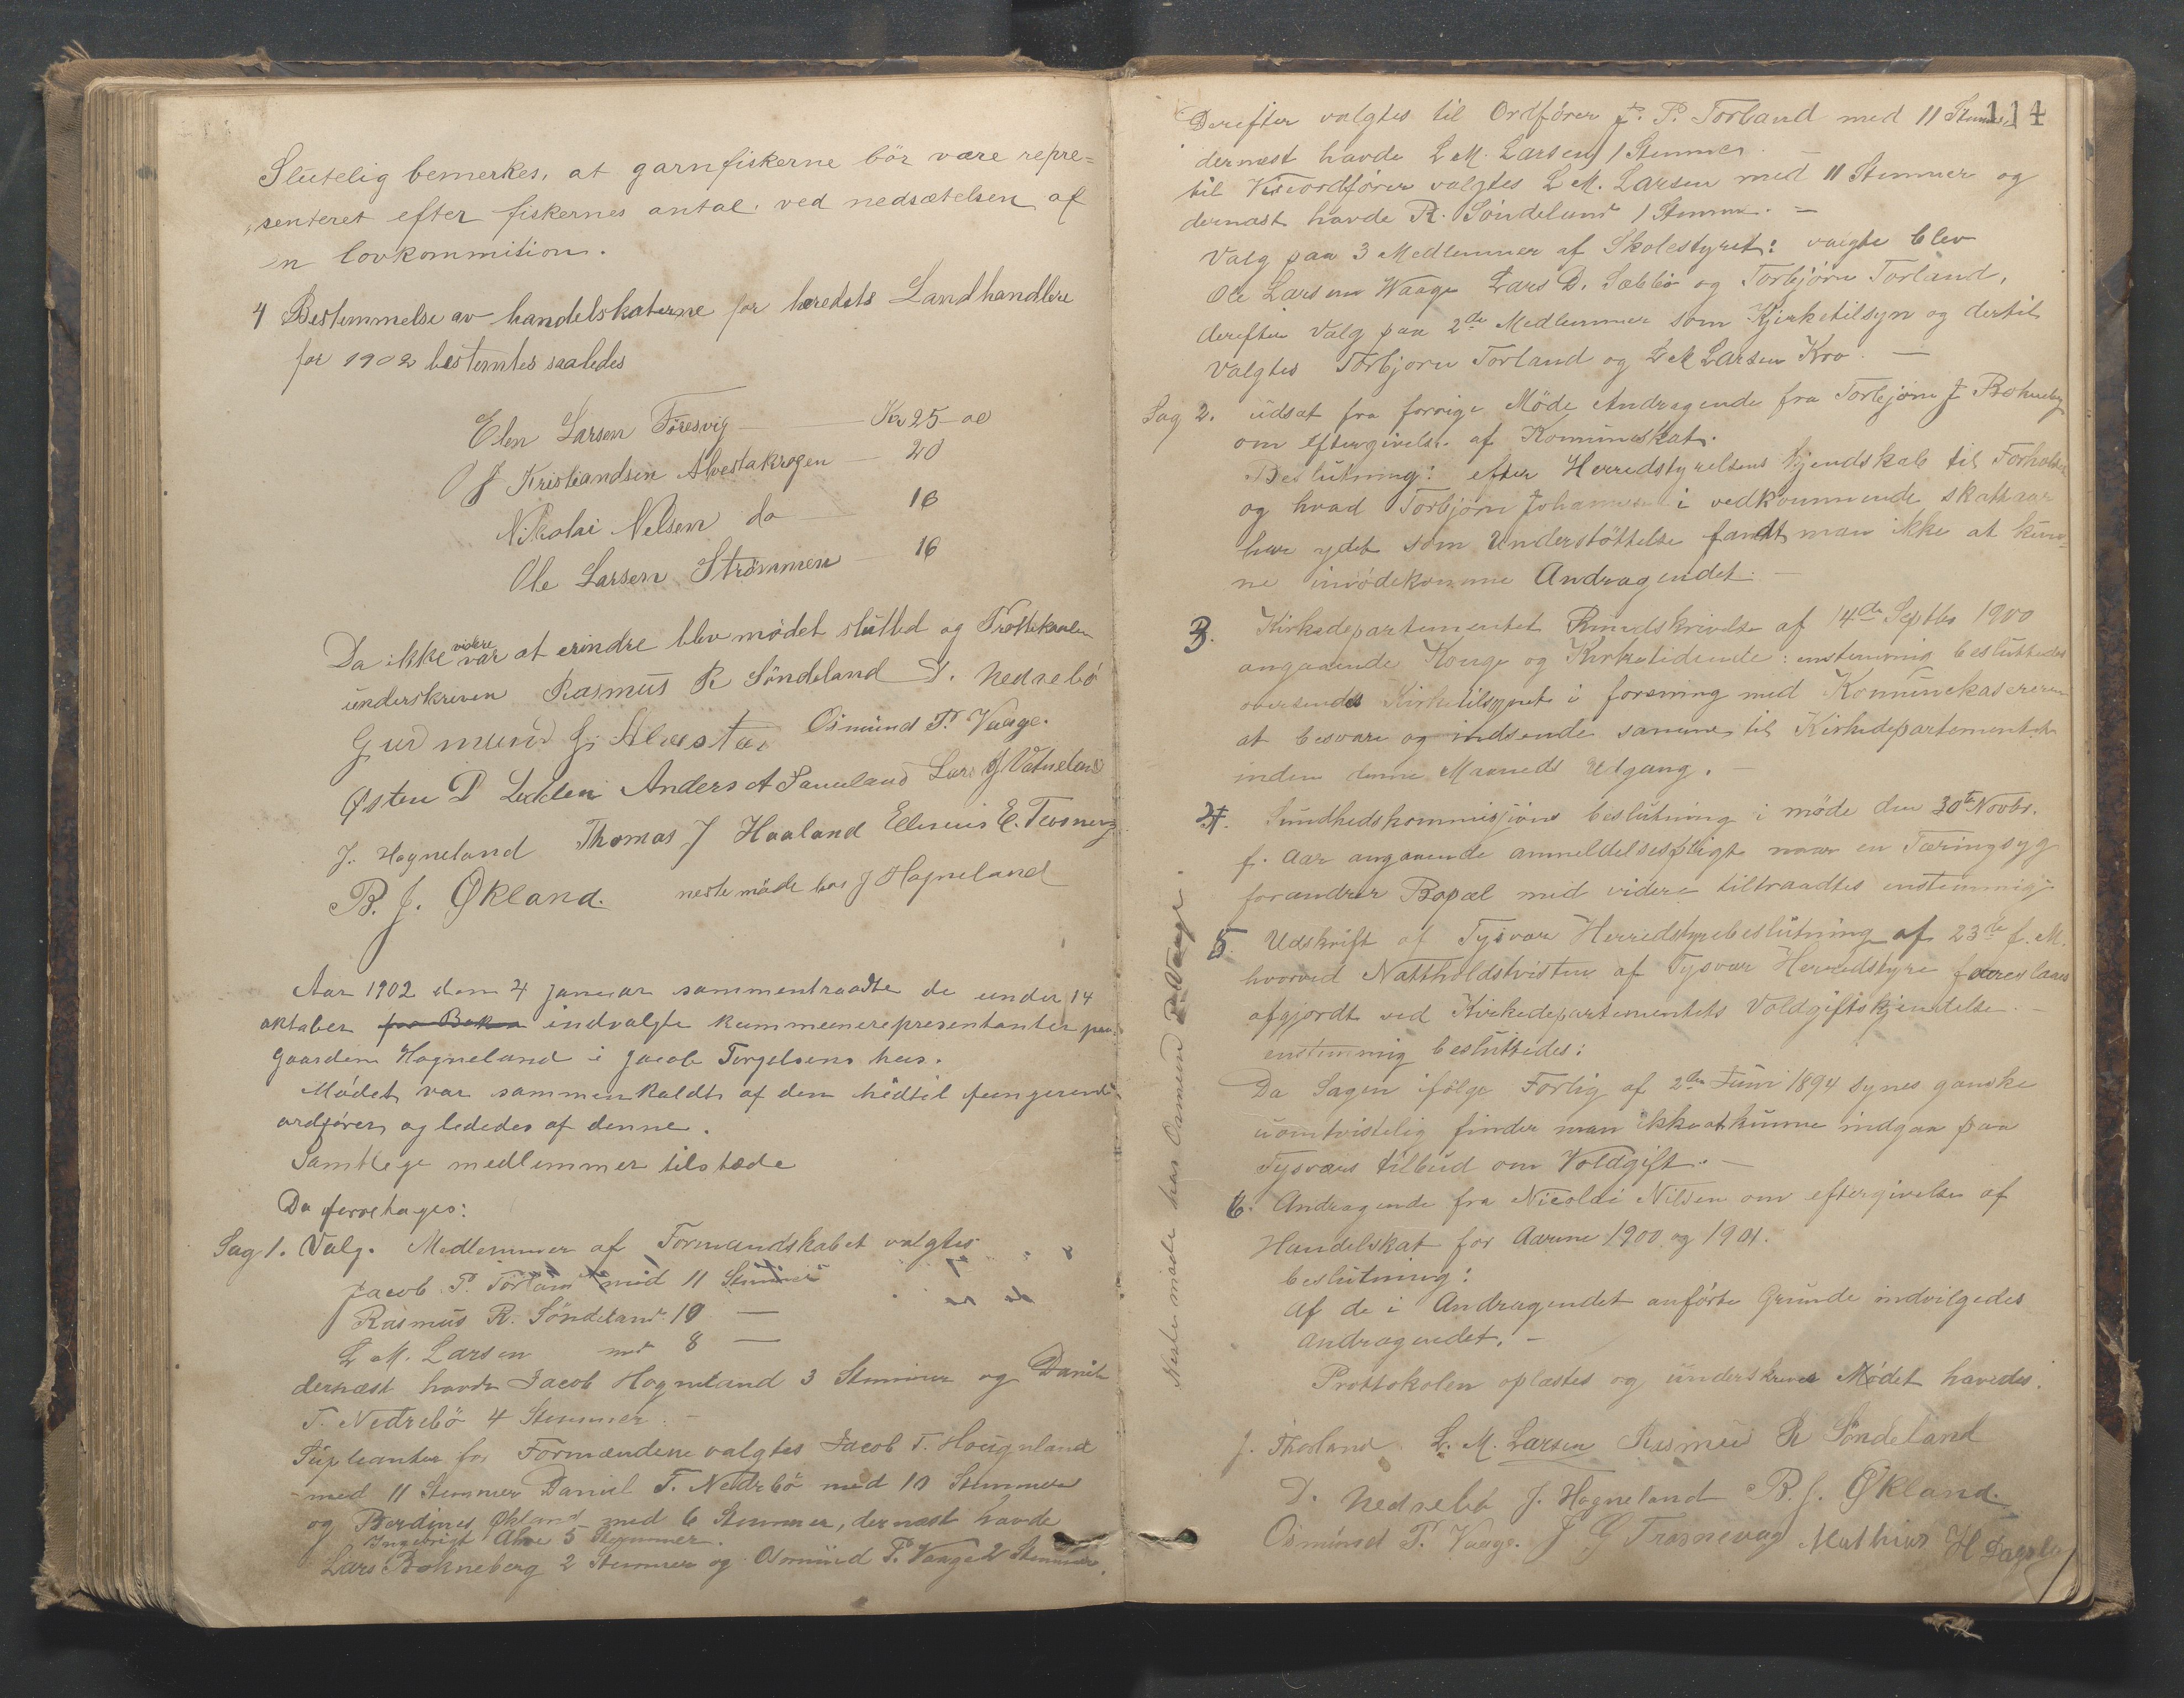 Slutelig bemerkes, at garnfiskerne bör være repre=
senteret efter fiskernes antal. ved nedsætelsen af
en lovkommition.
4 Bestemmelse av handelskaterne for heredets Landhandlere
for 1902 bestemtes saaledes
Elen Larsen Føresvig — Kr 25-00
J Kristiandsen Alvestakrogen — 20
Nikolai Nilsen do — 16
Ole Larsen Strømmen — 16
Da ikke videre var at erindre blev mødet slutted og Prottekaalen
underskreven Rasmus R Söndeland D. Nedrebö
Gudmund G. Alvestad Osmund P. Vaage.
Østen D Lodden Anders A Sandland Lars J Vatneland
J. Hogneland Thomas J Haaland Elenius E.
B. J. Økland. neste møde hos J Hogneland
Aar 1902 den 4 januar sammentraadte de under 14
oktober indvalgte kommunerepresentanter paa
Gaarden Hogneland i Jacob Torgelsens hus.
Mødet var sammenkaldt af den hidtil fungerende
ordfører og lededes af denne.
Samtlege medlemmer tilstede
Da foretages:
Sag 1. Valg. Medlemmer af Formandskabet valgtes
Jacob P. Torland med 11 Stemmer
Rasmus R. Söndeland 10 —
L M. Larsen med 8 —
dernæst havde Jacob Hogneland 3 Stemmer og Daniel
T. Nedrebö 4 Stemmer. -
Supleanter for Formændene valgtes Jacob T. Hougnland
med 11 Stemmer Daniel T. Nedrebö med 10 Stemmer
og Berdines Økland med 6 Stemmer, dernæst havde
Ingebrigt Alve 5 Stemmer.
Lars Bokneberg 2 Stemmer og Osmund P. Vaage 2 Stemmer.
114
Derefter valgtes til Ordfører J. P. Torland med 11 Stemmer
dernæst havde L M. Larsen 1 Stemmer
til Viseordfører valgtes L M. Larsen med 11 Stemmer og
dernæst havde R. Söndeland 1 Stemme. —
Valg paa 3 Medlemmer af Skolestyret: valgte blev
Ole Larsen Waage Lars D. Sæbbö og Torbjörn Torland,
derefter Valg paa 2de Medlemmer som Kjirketilsyn og dertil
valgtes Torbjorn Torland og L M Larsen Kro. —
Sag 2. udsat fra forrige Möde Andragende fra Torbjörn J Bokneberg
om eftergivelse af Komuneskat.
Beslutning: efter Herredstyrelsens kjendskab til Forholdene
og hvad Torbjörn Johannesen i vedkommende skattaar
har ydet som Understöttelse fandt man ikke at kun-
ne imödekomme Andragendet. —
3. Kirkedepartementet Rundskrivelse af 14de Septbr 1900
angaaende Konge og Kirketidende: enstemmig besluttedes
oversendes Kirketilsynet i forening med Komunekasereren
at besvare og indsende samme til Kirkedepartementet
inden denne Maaneds Udgang. —
4. Sundhedskommisjons beslutning i möde den 30te Novbr.
f. Aar angaaende anmeldelsespligt naar en Tæringsyg
forandrer Bopæl med videre tiltraadtes enstemmig.
5. Udskrift af Tysvær Herredstyrebeslutning af 23de f. M.
hvorved Nattholdstvisten af Tysvær Herredstyre foareslaaes
afgjordt ved Kirkedepartementets Voldgiftskjendelse. —
enstemmig besluttedes:
Da Sagen ifölge Forlig af 2den Juni 1894 synes ganske
uomtvistelig finder man ikke at kunne indgaa paa
Tysværs tilbud om Voldgift. —
6. Andragende fra Nicolai Nilsen om eftergivelse af
Handelskat for Aarene 1900 og 1901.
beslutning:
Af de i Andragendet anförte Grunde indvilgedes
Andragendet. -
Prottokolen oplæstes og underskreves Mödet hævedes.
J. Thorland L. M. Larsen Rasmus R Söndeland
D. Nedrebö J. Hogneland B. J. Økland.
Osmund P. Vaage. J G Trosnevag Mathias H
Neste møde hos Osmund P. Vaage.